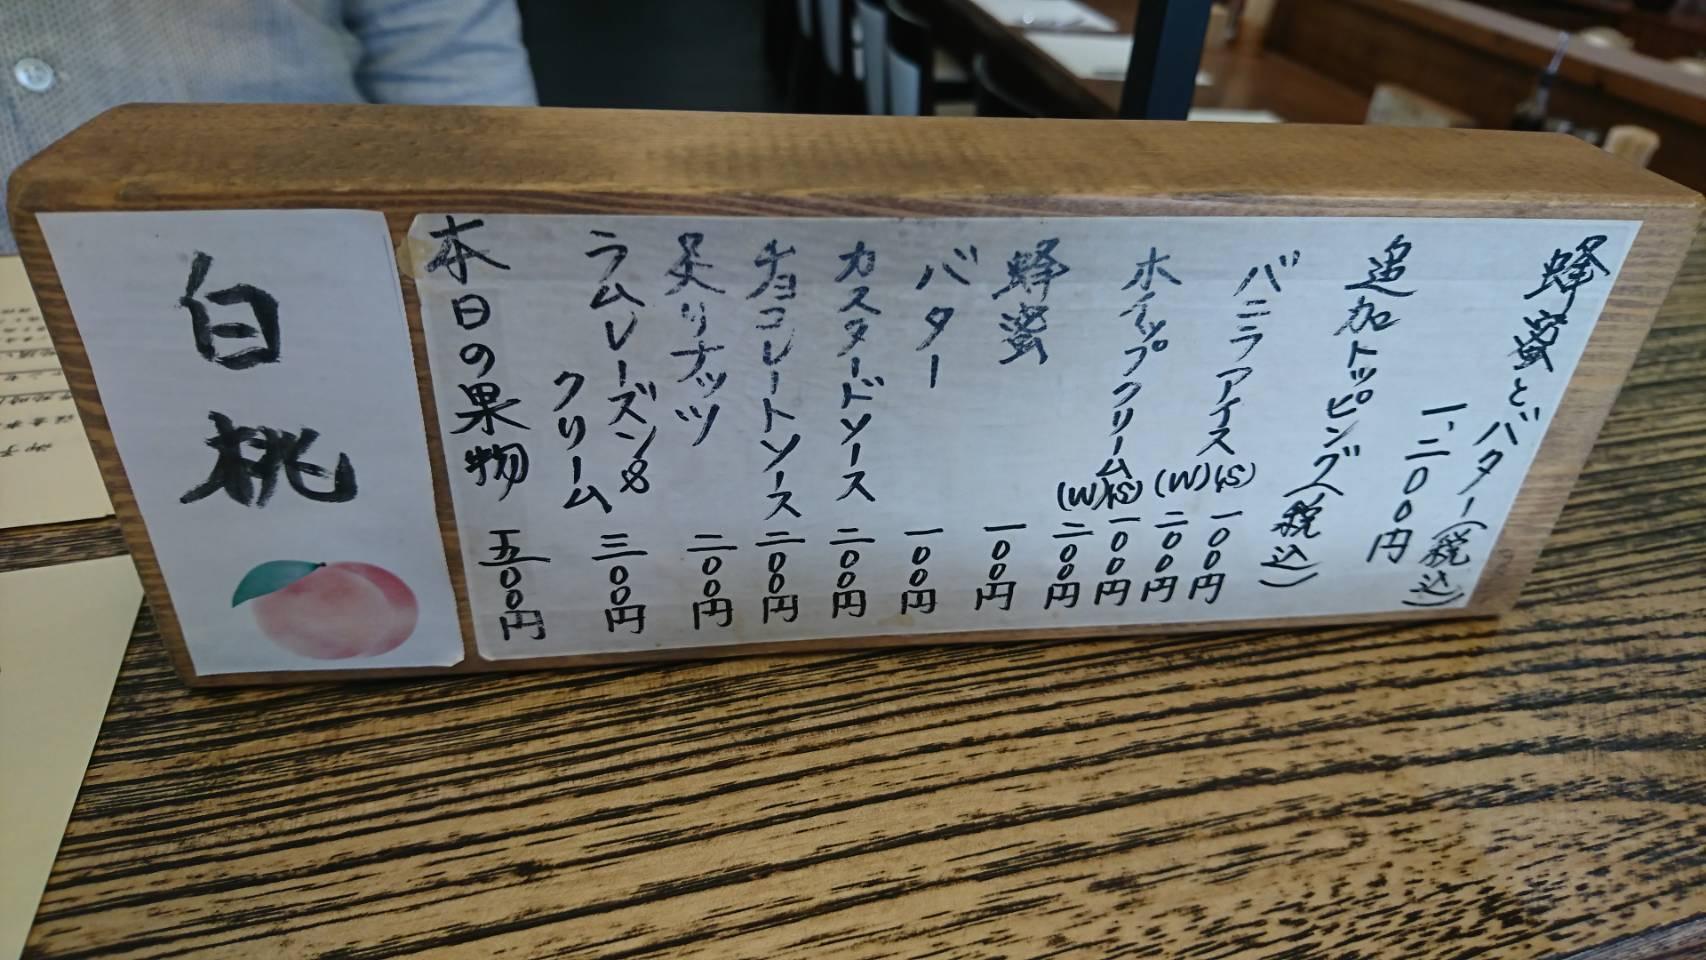 蜂蜜とバター(税込)
一、二〇〇円
追加トッピング(税込)
バニラアイス(S) 一〇〇円
(W) 二〇〇円
ホイップクリーム(S) 一〇〇円
(W) 二〇〇円
蜂蜜 一〇〇円
バター 一〇〇円
カスタードソース 二〇〇円
チョコレートソース 二〇〇円
炙りナッツ 二〇〇円
ラムレーズン&
クリーム 三〇〇円
本日の果物 五〇〇円
白桃